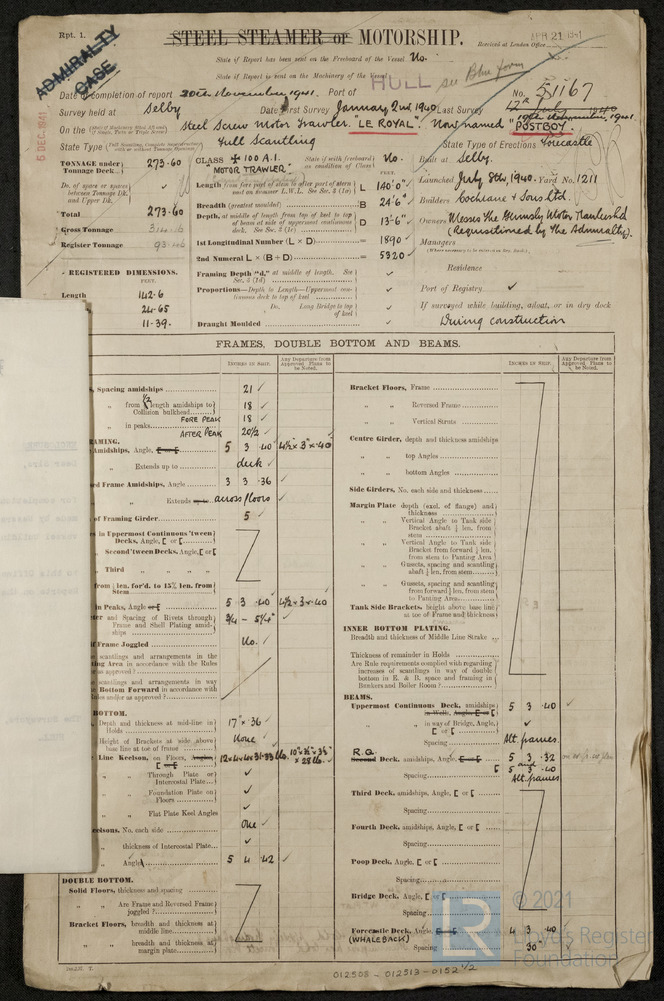 Rpt. 1.
STEEL STEAMER or MOTORSHIP.
APR 21 1941
Received at London Office
ADMIRALTY CASE
State if Report has been sent on the Freeboard of the Vessel No.
State if Report is sent on the Machinery of the Vessel
HULL see Blue form
Date of completion of report 20th November 1941. Port of
No. 51167
Survey held at Selby Date First Survey January 2nd 1940 Last Survey
5 DEC 1941
On the Steel Screw Motor Trawler. "LE ROYAL". Now named "POSTBOY".
State Type Full Scantling State Type of Erections Forecastle
TONNAGE under Tonnage Deck 273.60
Do. of space or spaces between Tonnage Dk. and Upper Dk.
Total 273.60
Gross Tonnage
Register Tonnage
REGISTERED DIMENSIONS.
FEET.
Length 142.6
24.65
11.39.
CLASS ✠ 100 A.I. State if with freeboard as condition of Class No.
"MOTOR TRAWLER"
FEET.
Length from fore part of stem to after part of stern post on summer L.W.L. See Sec. 3 (1a) L 140'0"
Breadth (greatest moulded) B 24'6"
Depth, at middle of length from top of keel to top of beam at side of uppermost continuous deck. See Sec. 3 (1c) D 13'-6"
1st Longitudinal Number (L × D) = 1890
2nd Numeral L × (B + D) = 5320
Framing Depth "d," at middle of length. See Sec. 3 (1d) ✓
Proportions—Depth to Length—Uppermost continuous deck to top of keel ✓
Do. Long Bridge to top of keel ✓
Draught Moulded ✓
Built at Selby.
Launched July 8th, 1940 Yard No. 1211
Builders Cochrane & Sons Ltd.
Owners Messrs The Grimsby Motor Trawlers Ld
(Requisitioned by The Admiralty).
Managers
Residence
Port of Registry ✓
If surveyed while building, afloat, or in dry dock
During construction
FRAMES, DOUBLE BOTTOM AND BEAMS.
INCHES IN SHIP.
Any Departure from Approved Plans to be Noted.
INCHES IN SHIP.
Any Departure from Approved Plans to be Noted.
, Spacing amidships 21 ✓
" from 1/2 length amidships to Collision bulkhead 18 ✓
" in peaks FORE PEAK 18 ✓
AFTER PEAK 20½ ✓
AMING,
Amidships, Angle, 5 3 .40 4½" × 3" × .40
" Extends up to deck ✓
ed Frame Amidships, Angle 3 3 .36 ✓
" Extends up to across floors ✓
of Framing Girder 5 ✓
s in Uppermost Continuous 'tween Decks, Angle, [ or [
Second 'tween Decks, Angle, [ or [
Third " " " "
from ⅕ len. for'd. to 15% len. from Stem
in Peaks, Angle or [ 5 3 .40 4½ × 3 × .40
ter and Spacing of Rivets through Frame and Shell Plating amidships ¾ - 5¼" ✓
f Frame Joggled No. ✓
scantlings and arrangements in the ting Area in accordance with the Rules as approved?
scantlings and arrangements in way Bottom Forward in accordance with ules and/or as approved?
BOTTOM.
Depth and thickness at mid-line in Holds 17" × .36 ✓
Height of Brackets at side above base line at toe of frame None ✓
Line Keelson, on Floors, Angles,
" Through Plate or Intercostal Plate ✓
" Foundation Plate on Floors ✓
" Flat Plate Keel Angles ✓
eelsons. No. each side One ✓
" thickness of Intercostal Plate ✓
" Angles 5 4 .42 ✓
DOUBLE BOTTOM.
Solid Floors, thickness and spacing
" Are Frame and Reversed Frame joggled?
Bracket Floors, breadth and thickness at middle line
" " breadth and thickness at margin plate
Bracket Floors, Frame
" " Reversed Frame
" " Vertical Struts
Centre Girder, depth and thickness amidships
" " top Angles
" " bottom Angles
Side Girders, No. each side and thickness
Margin Plate depth (excl. of flange) and thickness
" " Vertical Angle to Tank side Bracket abaft ¼ len. from stem
" " Vertical Angle to Tank side Bracket from forward ¼ len. from stem to Panting Area
" " Gussets, spacing and scantling abaft ¼ len. from stem
" " Gussets, spacing and scantling forward ¼ len. from stem to Panting Area
Tank Side Brackets, height above base line at toe of Frame and thickness
INNER BOTTOM PLATING.
Breadth and thickness of Middle Line Strake
Thickness of remainder in Holds
Are Rule requirements complied with regarding increases of scantlings in way of double bottom in E. & B. space and framing in Bunkers and Boiler Room?
BEAMS.
Uppermost Continuous Deck, amidships 5 3 .40 ✓
in Well, Angle, [ or [
" " in way of Bridge, Angle, [ or [ ✓
Spacing Alt. frames.
R.Q.
Second Deck, amidships, Angle, [ or [ 5 3 .32 and
Spacing 5 3 .40 Alt. frames
Third Deck, amidships, Angle, [ or [
Spacing
Fourth Deck, amidships, Angle, [ or [
Spacing
Poop Deck, Angle, [ or [
Spacing
Bridge Deck, Angle, [ or [
Spacing
Forecastle Deck, Angle, [ or [ 4 3 .40
(WHALEBACK) Spacing 30"
LR
© 2021
Lloyd's Register
Foundation
012508 - 012513 - 0152 1/2